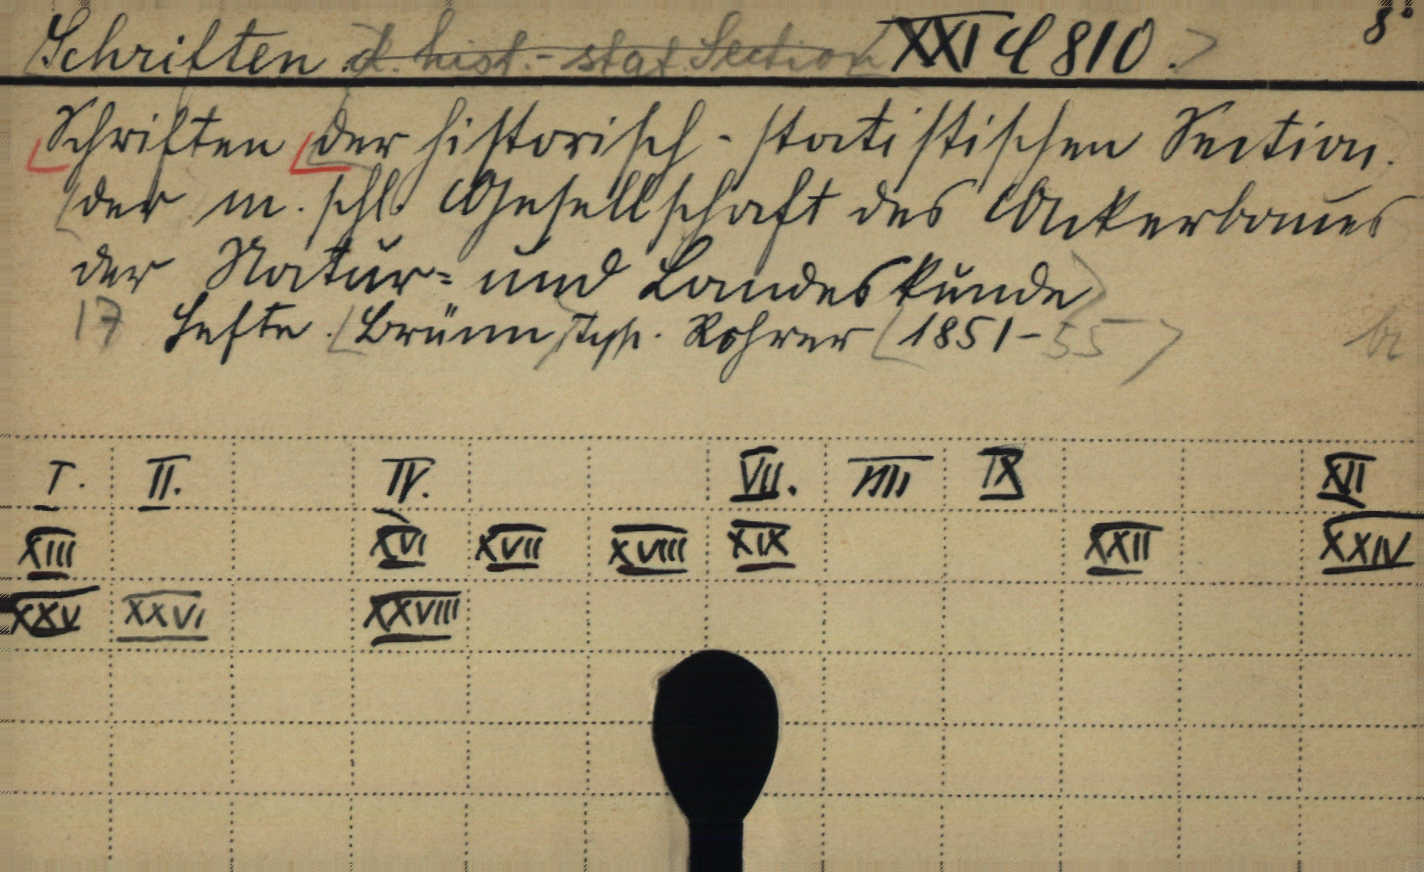 Schriften d. hist.-stat. Section XXI d 810. 8°
Schriften der historisch-statistischen Section.
der m. schl. Gesellschaft des Ackerbaues
der Natur= und Landeskunde
17 Hefte. Brünn, Typ. Rohrer 1851-55
I. II. IV. VII. VIII IX XII
XIII XVI XVII XVIII XIX XXII XXIV
XXV XXVI XXVIII